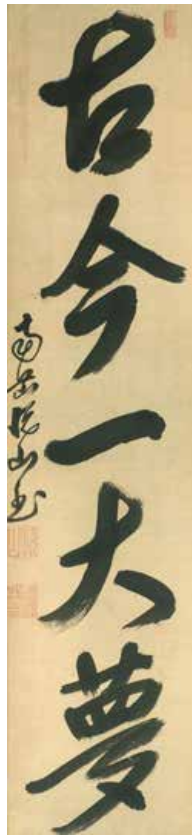 古今一大夢
南岳悦山書